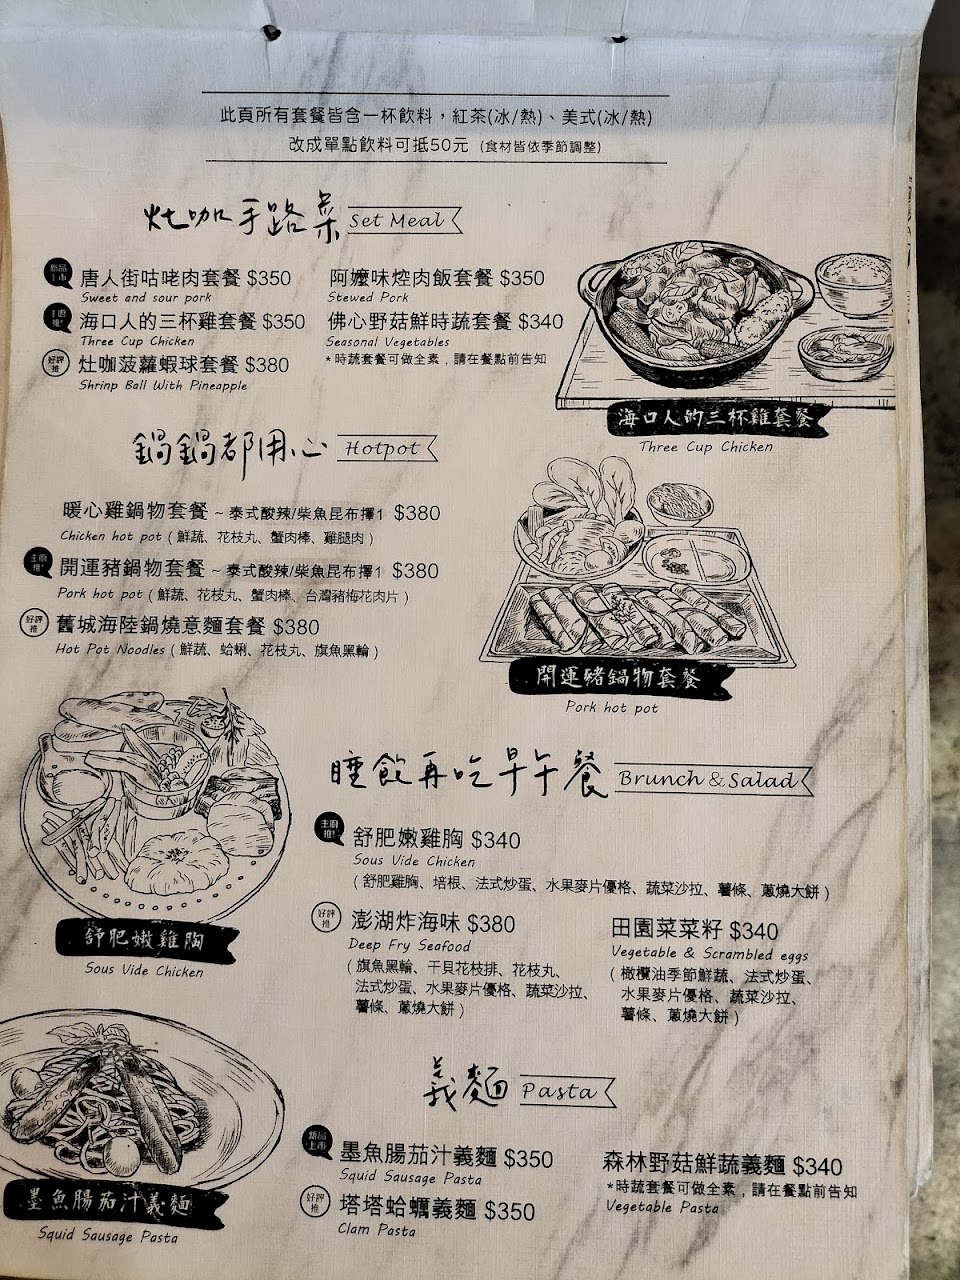 此頁所有套餐皆含一杯飲料，紅茶(冰/熱)、美式(冰/熱)
改成單點飲料可抵50元 (食材皆依季節調整)
灶咖手路菜 Set Meal
新品上市 唐人街咕咾肉套餐 $350
Sweet and sour pork
主廚推 海口人的三杯雞套餐 $350
Three Cup Chicken
好評推 灶咖菠蘿蝦球套餐 $380
Shrinp Ball With Pineapple
阿嬤味焢肉飯套餐 $350
Stewed Pork
佛心野菇鮮時蔬套餐 $340
Seasonal Vegetables
*時蔬套餐可做全素，請在餐點前告知
海口人的三杯雞套餐
Three Cup Chicken
鍋鍋都用心 Hotpot
暖心雞鍋物套餐 ~ 泰式酸辣/柴魚昆布擇1 $380
Chicken hot pot (鮮蔬、花枝丸、蟹肉棒、雞腿肉)
主廚推 開運豬鍋物套餐 ~ 泰式酸辣/柴魚昆布擇1 $380
Pork hot pot (鮮蔬、花枝丸、蟹肉棒、台灣豬梅花肉片)
好評推 舊城海陸鍋燒意麵套餐 $380
Hot Pot Noodles (鮮蔬、蛤蜊、花枝丸、旗魚黑輪)
開運豬鍋物套餐
Pork hot pot
睡飽再吃早午餐 Brunch & Salad
主廚推 舒肥嫩雞胸 $340
Sous Vide Chicken
(舒肥雞胸、培根、法式炒蛋、水果麥片優格、蔬菜沙拉、薯條、蔥燒大餅)
好評推 澎湖炸海味 $380
Deep Fry Seafood
(旗魚黑輪、干貝花枝排、花枝丸、
法式炒蛋、水果麥片優格、蔬菜沙拉、
薯條、蔥燒大餅)
田園菜菜籽 $340
Vegetable & Scrambled eggs
(橄欖油季節鮮蔬、法式炒蛋、
水果麥片優格、蔬菜沙拉、
薯條、蔥燒大餅)
舒肥嫩雞胸
Sous Vide Chicken
義麵 Pasta
新品上市 墨魚腸茄汁義麵 $350
Squid Sausage Pasta
好評推 塔塔蛤蠣義麵 $350
Clam Pasta
森林野菇鮮蔬義麵 $340
*時蔬套餐可做全素，請在餐點前告知
Vegetable Pasta
墨魚腸茄汁義麵
Squid Sausage Pasta